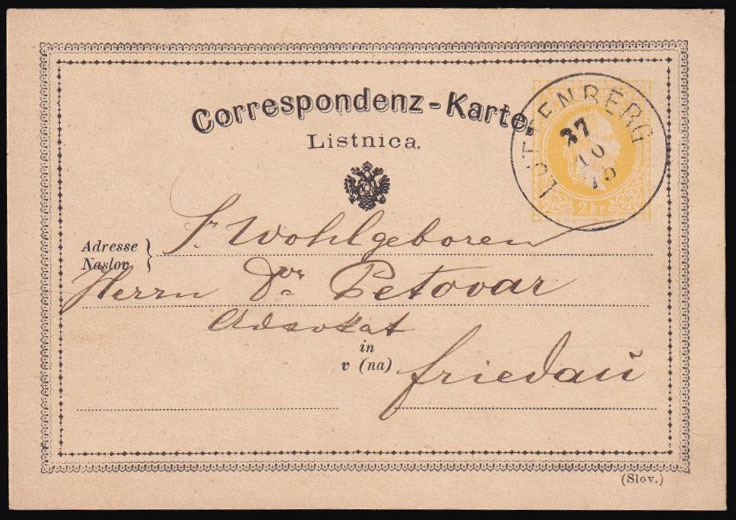 Correspondenz-Karte.
Listnica.
LUTTENBERG
27
10
2 kr.
Adresse
Naslov
S. Wohlgeboren
Herrn Dr. Petovar
Advokat
in
v (na)
Friedau
(Slov.)